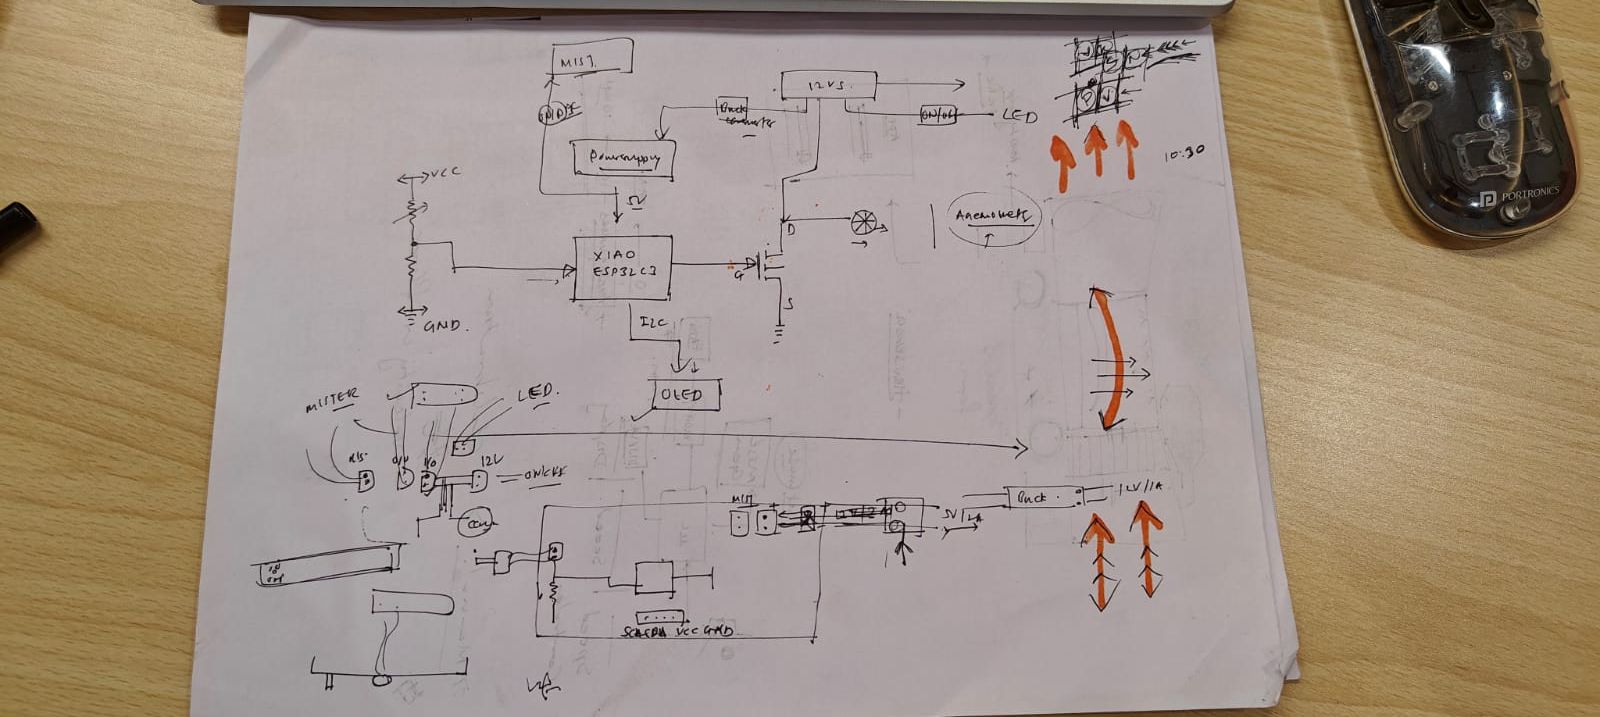 MIST.
12V5.
Buck
converter
ON/OFF
LED
Powersupply
10:30
PORTRONICS
VCC
Anemometer
D
XIAO
ESP32C3
G
S
GND.
I2C
OLED
MISTER
LED.
MIS.
12V
ON/OFF
MIST
5V/2A
Buck.
12V/1A
SCL SDA VCC GND